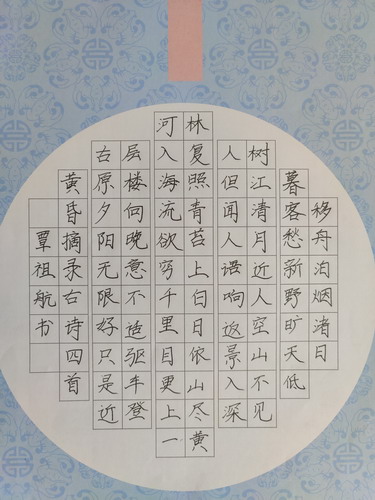 移舟泊烟渚日
暮客愁新野旷天低
树江清月近人空山不见
人但闻人语响返景入深
林复照青苔上白日依山尽黄
河入海流欲穷千里目更上一
层楼向晚意不适驱车登
古原夕阳无限好只是近
黄昏摘录古诗四首
覃祖航书